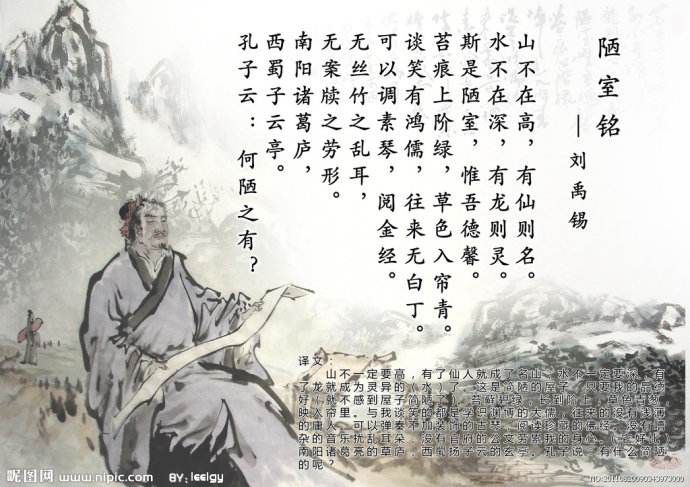 陋室铭
—刘禹锡
山不在高，有仙则名。
水不在深，有龙则灵。
斯是陋室，惟吾德馨。
苔痕上阶绿，草色入帘青。
谈笑有鸿儒，往来无白丁。
可以调素琴，阅金经。
无丝竹之乱耳，
无案牍之劳形。
南阳诸葛庐，
西蜀子云亭。
孔子云：何陋之有？
译文：
山不一定要高，有了仙人就成了名山；水不一定要深，有
了龙就成为灵异的（水）了。这是简陋的屋子，只要我的品德
好（就不感到屋子简陋了）。苔藓碧绿，长到阶上，草色青葱，
映入帘里。与我谈笑的都是学识渊博的大儒，往来的没有浅薄
的唐人，可以弹奏不加装饰的古琴，阅读珍藏的佛经。没有嘈
杂的音乐扰乱耳朵，没有官府的公文劳累我的身心。
南阳诸葛亮的草庐，西蜀扬子云的玄亭。孔子说：有什么简陋
的呢？
昵图网 www.nipic.com
BY: leelgy
NO:20110820090343973000